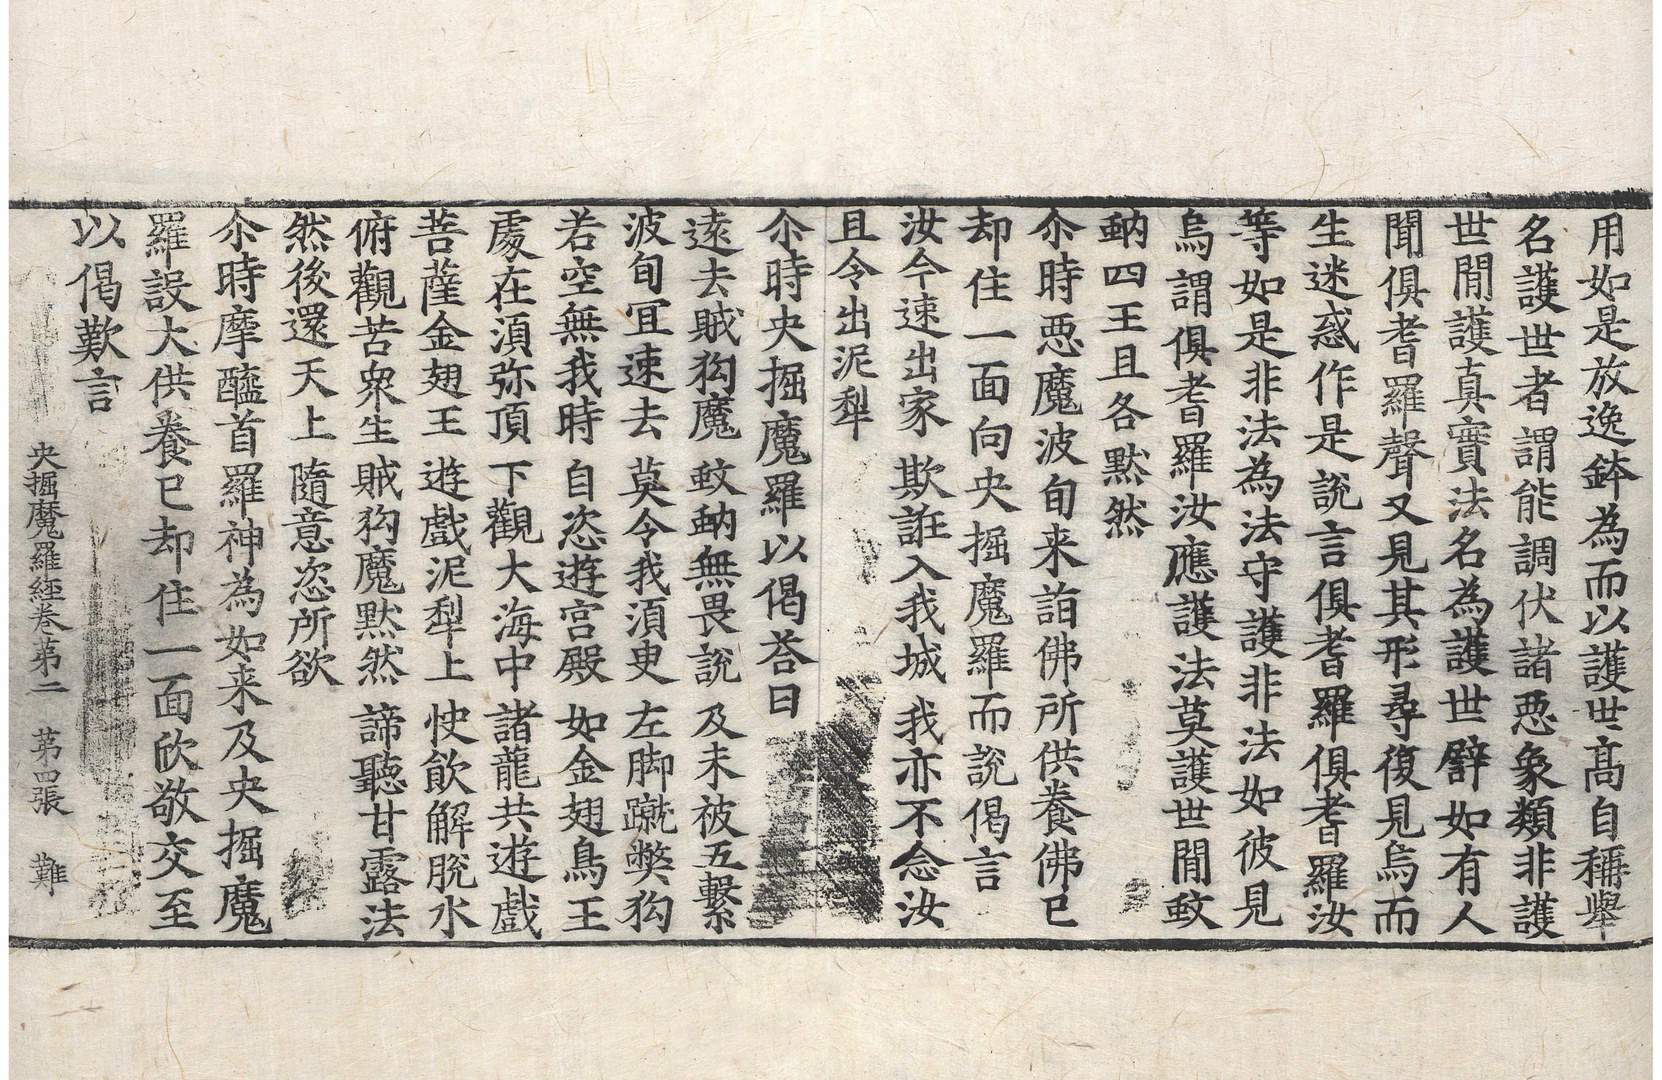 用如是放逸鉢為而以護世髙自稱舉
名護世者謂能調伏諸惡象類非護
世閒護真實法名為護世譬如有人
聞俱耆羅聲又見其形尋復見烏而
生迷惑作是說言俱耆羅俱耆羅汝
等如是非法為法守護非法如彼見
烏謂俱耆羅汝應護法莫護世閒蚊
蚋四王且各默然
尒時惡魔波旬来詣佛所供養佛已
却住一面向央掘魔羅而說偈言
汝今速出家 欺誑入我城 我亦不念汝
且令出泥犁
尒時央掘魔羅以偈荅曰
遠去賊狗魔 蚊蚋無畏說 及未被五繫
波旬冝速去 莫令我須臾 左脚蹴弊狗
若空無我時 自恣遊宮殿 如金翅鳥王
處在須弥頂 下觀大海中 諸龍共遊戲
菩薩金翅王 遊戲泥犁上 快飮解脫水
俯觀苦衆生 賊狗魔默然 諦聽甘露法
然後還天上 隨意恣所欲
尒時摩醯首羅神為如来及央掘魔
羅設大供養已却住一面欣敬交至
以偈歎言
央掘魔羅經卷第二 第四張 難